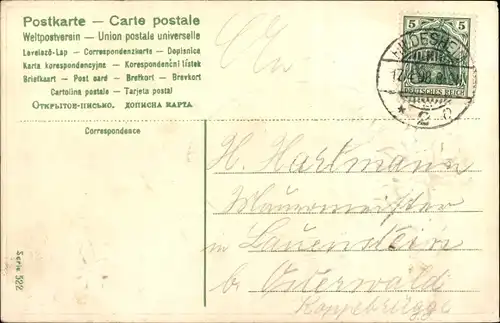 Postkarte – Carte postale
Weltpostverein – Union postale universelle
Levelező-Lap – Correspondenzkarte – Dopisnice
Karta korespondencyjne – Korespondenční lístek
Briefkaart – Post card – Brefkort – Brevkort
Cartolina postale – Tarjeta postal
Открытое-письмо. дописна карта.
Correspondence
5 5
HILDESHEIM
DEUTSCHES REICH
* 2
H. Hartmann
Maurermeister
in Lauenstein
b/ Osterwald
Koppebrügge
Serie 322